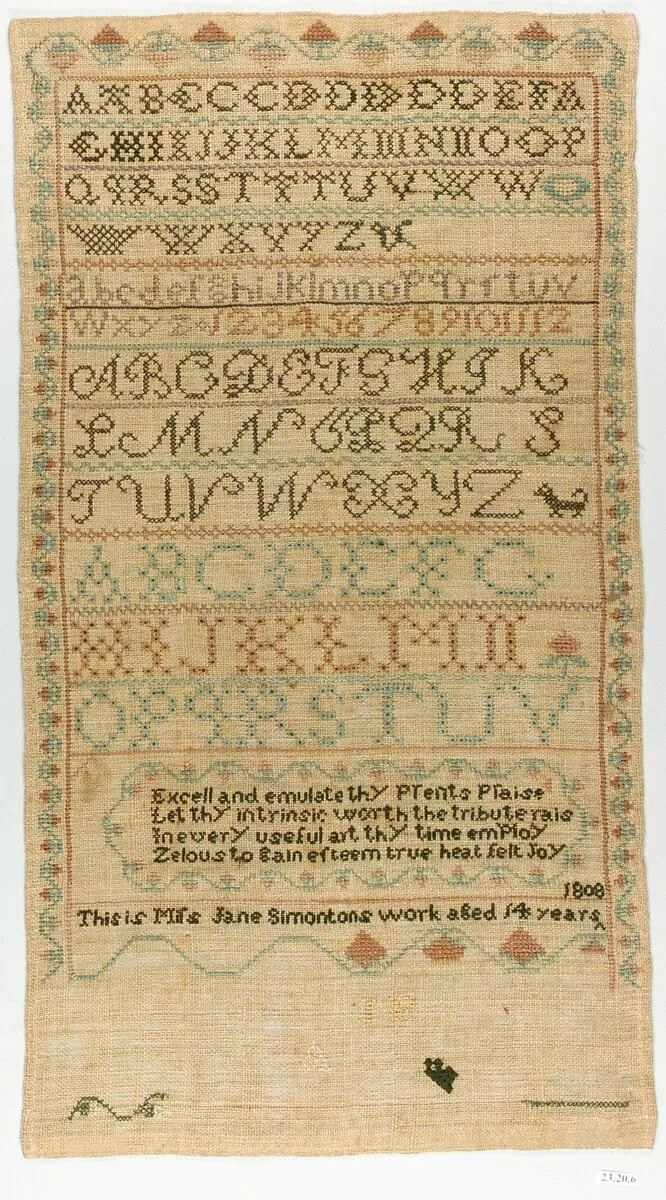 A A B C C C D D D D D E F A
G H I I J K L M N N O O P
Q q R S S T T T U V W W
W X Y Y Z
a b c d e f g h i j k l m n o p q r r t u v
w x y z 1 2 3 4 5 6 7 8 9 10 11 12
A B C D E F G H I K
L M N O P Q R S
T U V W X Y Z
A B C D E F G
H I J K L M N
O P q R S T U V
Excell and emulate thy Prents Praise
Let thy intrinsic worth the tribute rais
In every useful art thy time employ
Zelous to gain esteem true heat felt Joy
1808
This is Miſs Jane Simontons work aged 14 years
23.20.6